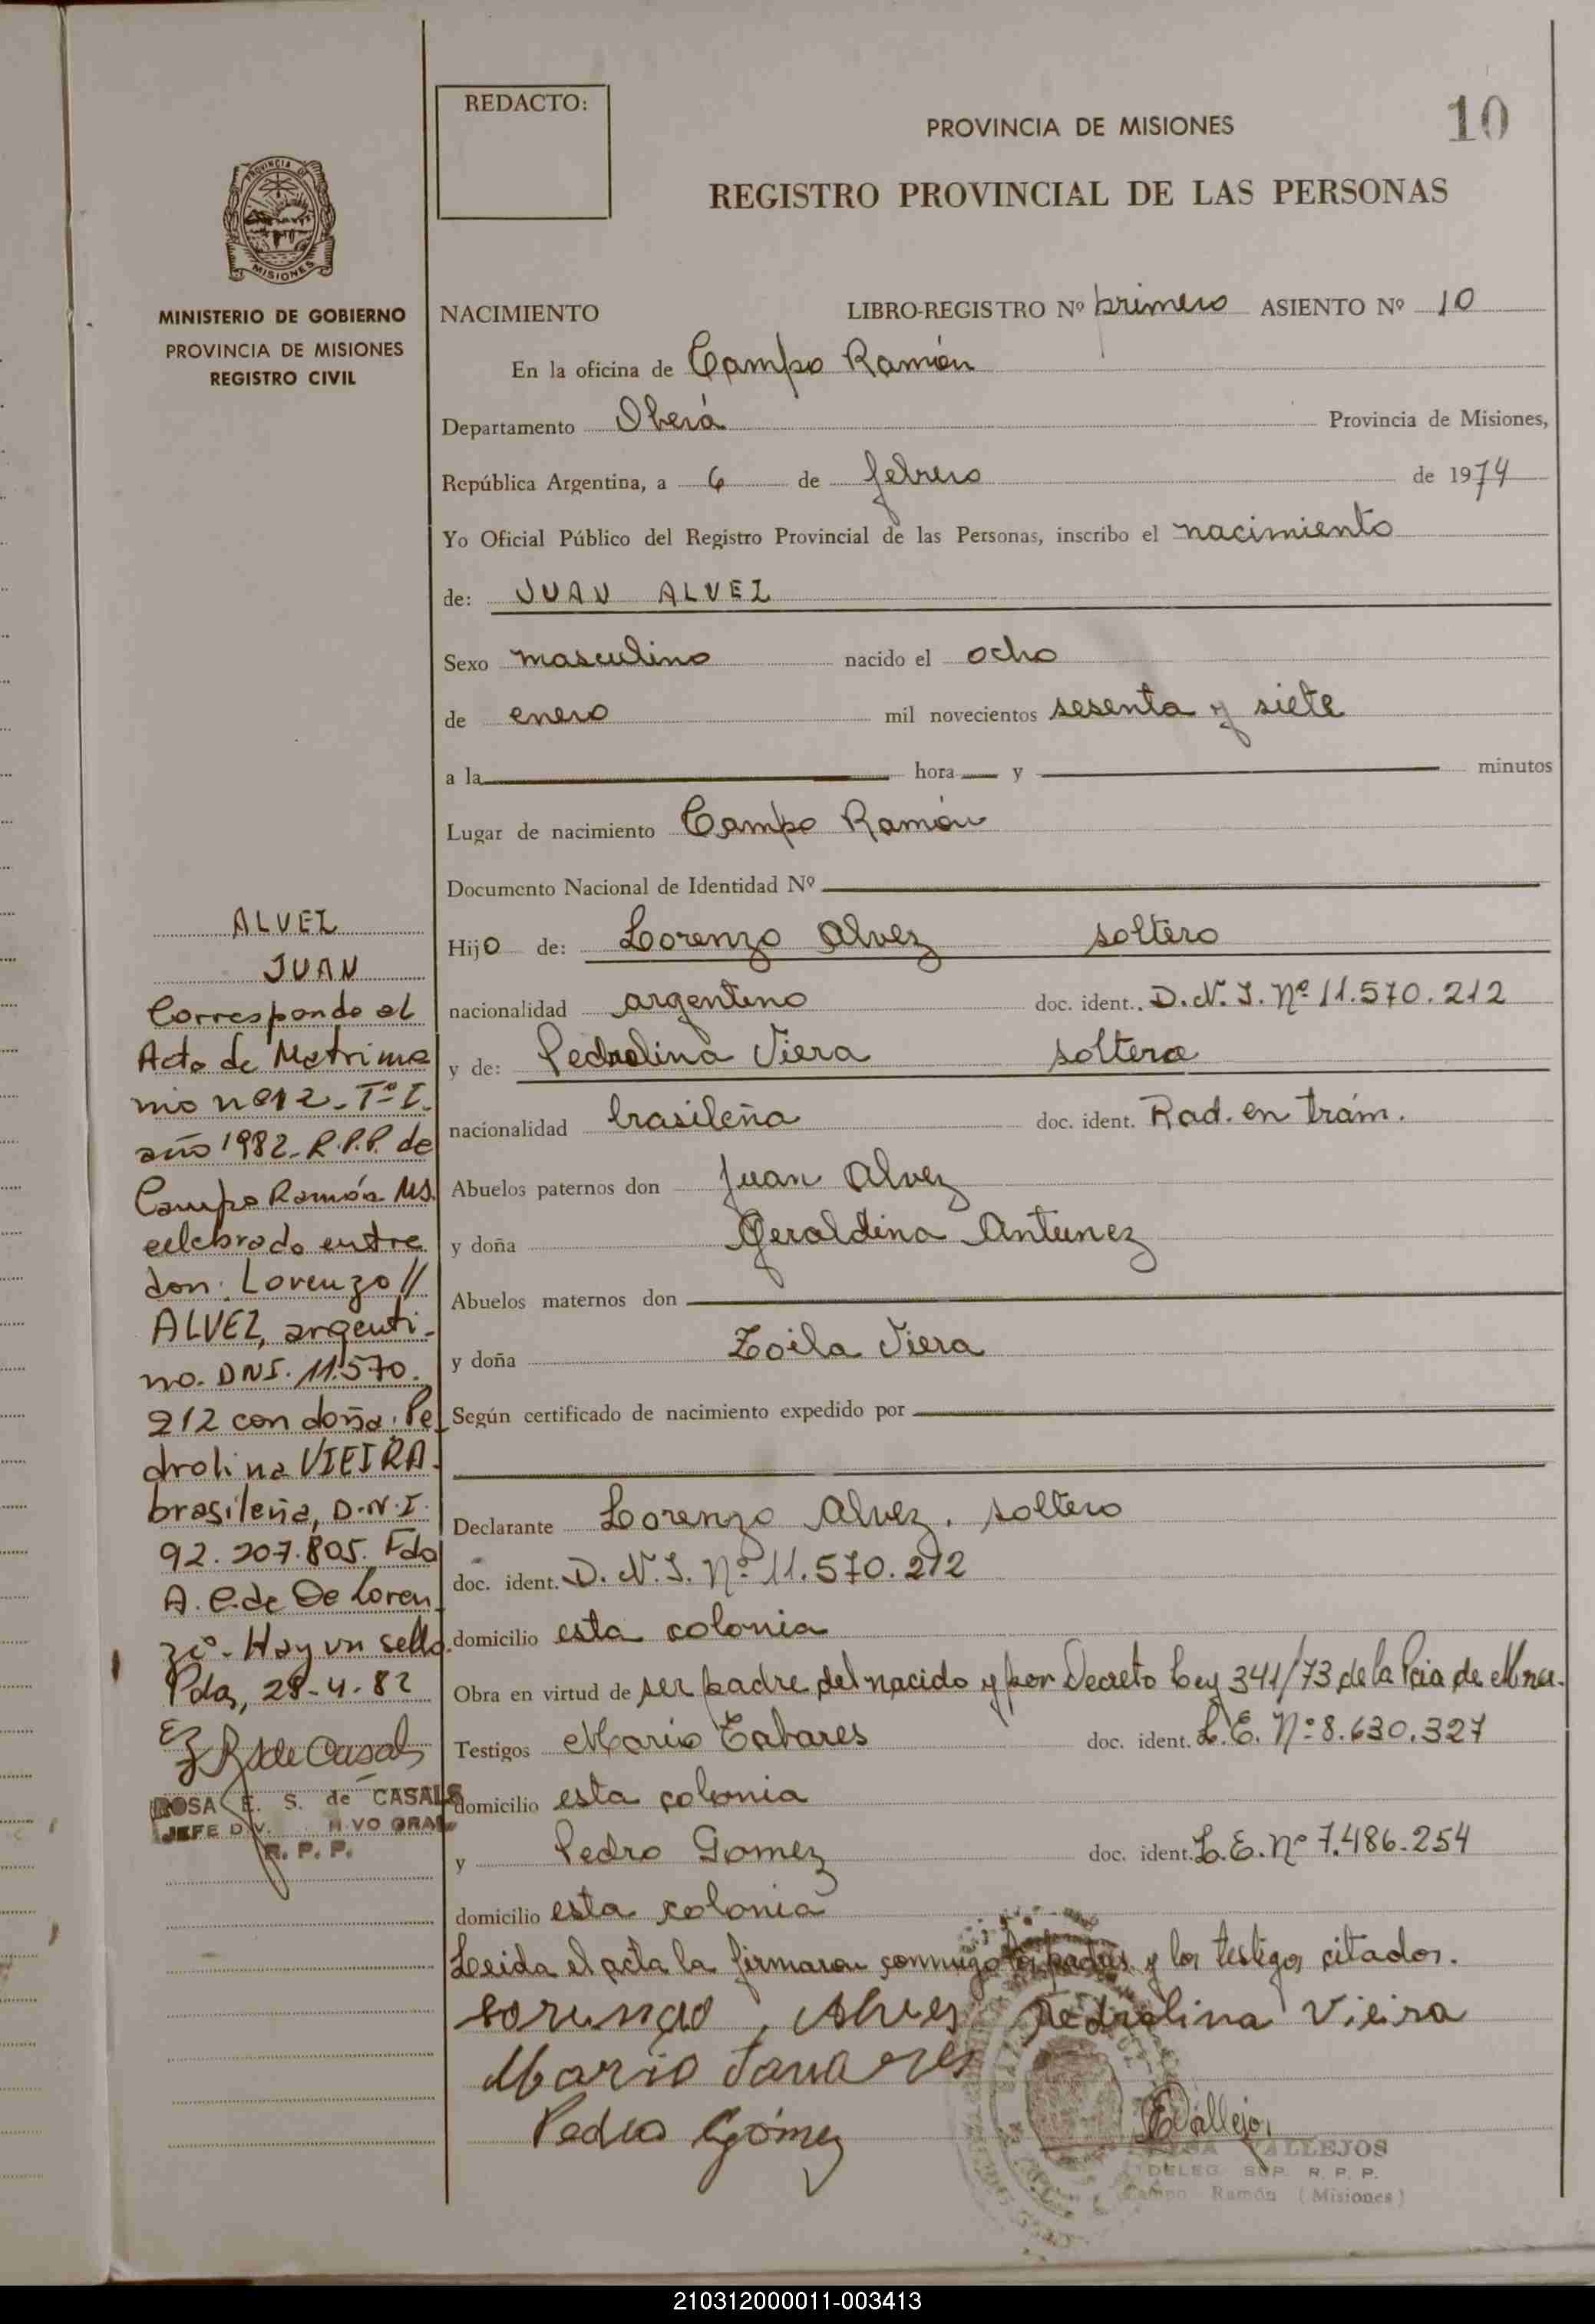 REDACTO:
PROVINCIA DE MISIONES
10
REGISTRO PROVINCIAL DE LAS PERSONAS
PROVINCIA DE
MISIONES
MINISTERIO DE GOBIERNO
PROVINCIA DE MISIONES
REGISTRO CIVIL
NACIMIENTO LIBRO-REGISTRO Nº primero ASIENTO Nº 10
En la oficina de Campo Ramón
Departamento Oberá Provincia de Misiones,
República Argentina, a 6 de febrero de 1974
Yo Oficial Público del Registro Provincial de las Personas, inscribo el nacimiento
de: JUAN ALVEZ
Sexo masculino nacido el ocho
de enero mil novecientos sesenta y siete
a la hora y minutos
Lugar de nacimiento Campo Ramón
Documento Nacional de Identidad Nº
Hijo de: Lorenzo Alvez soltero
nacionalidad argentino doc. ident. D.N.I. Nº 11.570.212
y de: Pedrolina Viera soltera
nacionalidad brasileña doc. ident. Rad. en trám.
Abuelos paternos don Juan Alvez
y doña Geraldina Antunez
Abuelos maternos don
y doña Zoila Viera
Según certificado de nacimiento expedido por
Declarante Lorenzo Alvez, soltero
doc. ident. D.N.I. Nº 11.570.212
domicilio esta colonia
Obra en virtud de ser padre del nacido y por Decreto Ley 341/73 de la Pcia de Mnes.
Testigos Mario Tabares doc. ident. L.E. Nº 8.630.327
domicilio esta colonia
y Pedro Gomez doc. ident. L.E. Nº 7.486.254
domicilio esta colonia
Leida el acta la firmaron conmigo los padres y los testigos citados.
Lorenzo Alves Pedrolina Vieira
Mario Tavares
Pedro Gómez
EVallejos
ELSA VALLEJOS
DELEG. SUP. R. P. P.
Campo Ramón (Misiones)
ALVEZ
JUAN
Corresponde al
Acta de Matrimo
nio nº 12 - Tº I.
año 1982 - R.P.P. de
Campo Ramón Ms.
celebrado entre
don: Lorenzo //
ALVEZ, argenti-
no. DNI. 11.570.
212 con doña: Pe
drolina VIEIRA.
brasileña, D.N.I.
92.207.805. Fdo
A. C. de De Loren
zio - Hay un sello.
Pdas, 28-4-82
E S de Casals
ROSA E. S. de CASALS
JEFE DIV. VO GRAL
R. P. P.
210312000011-003413